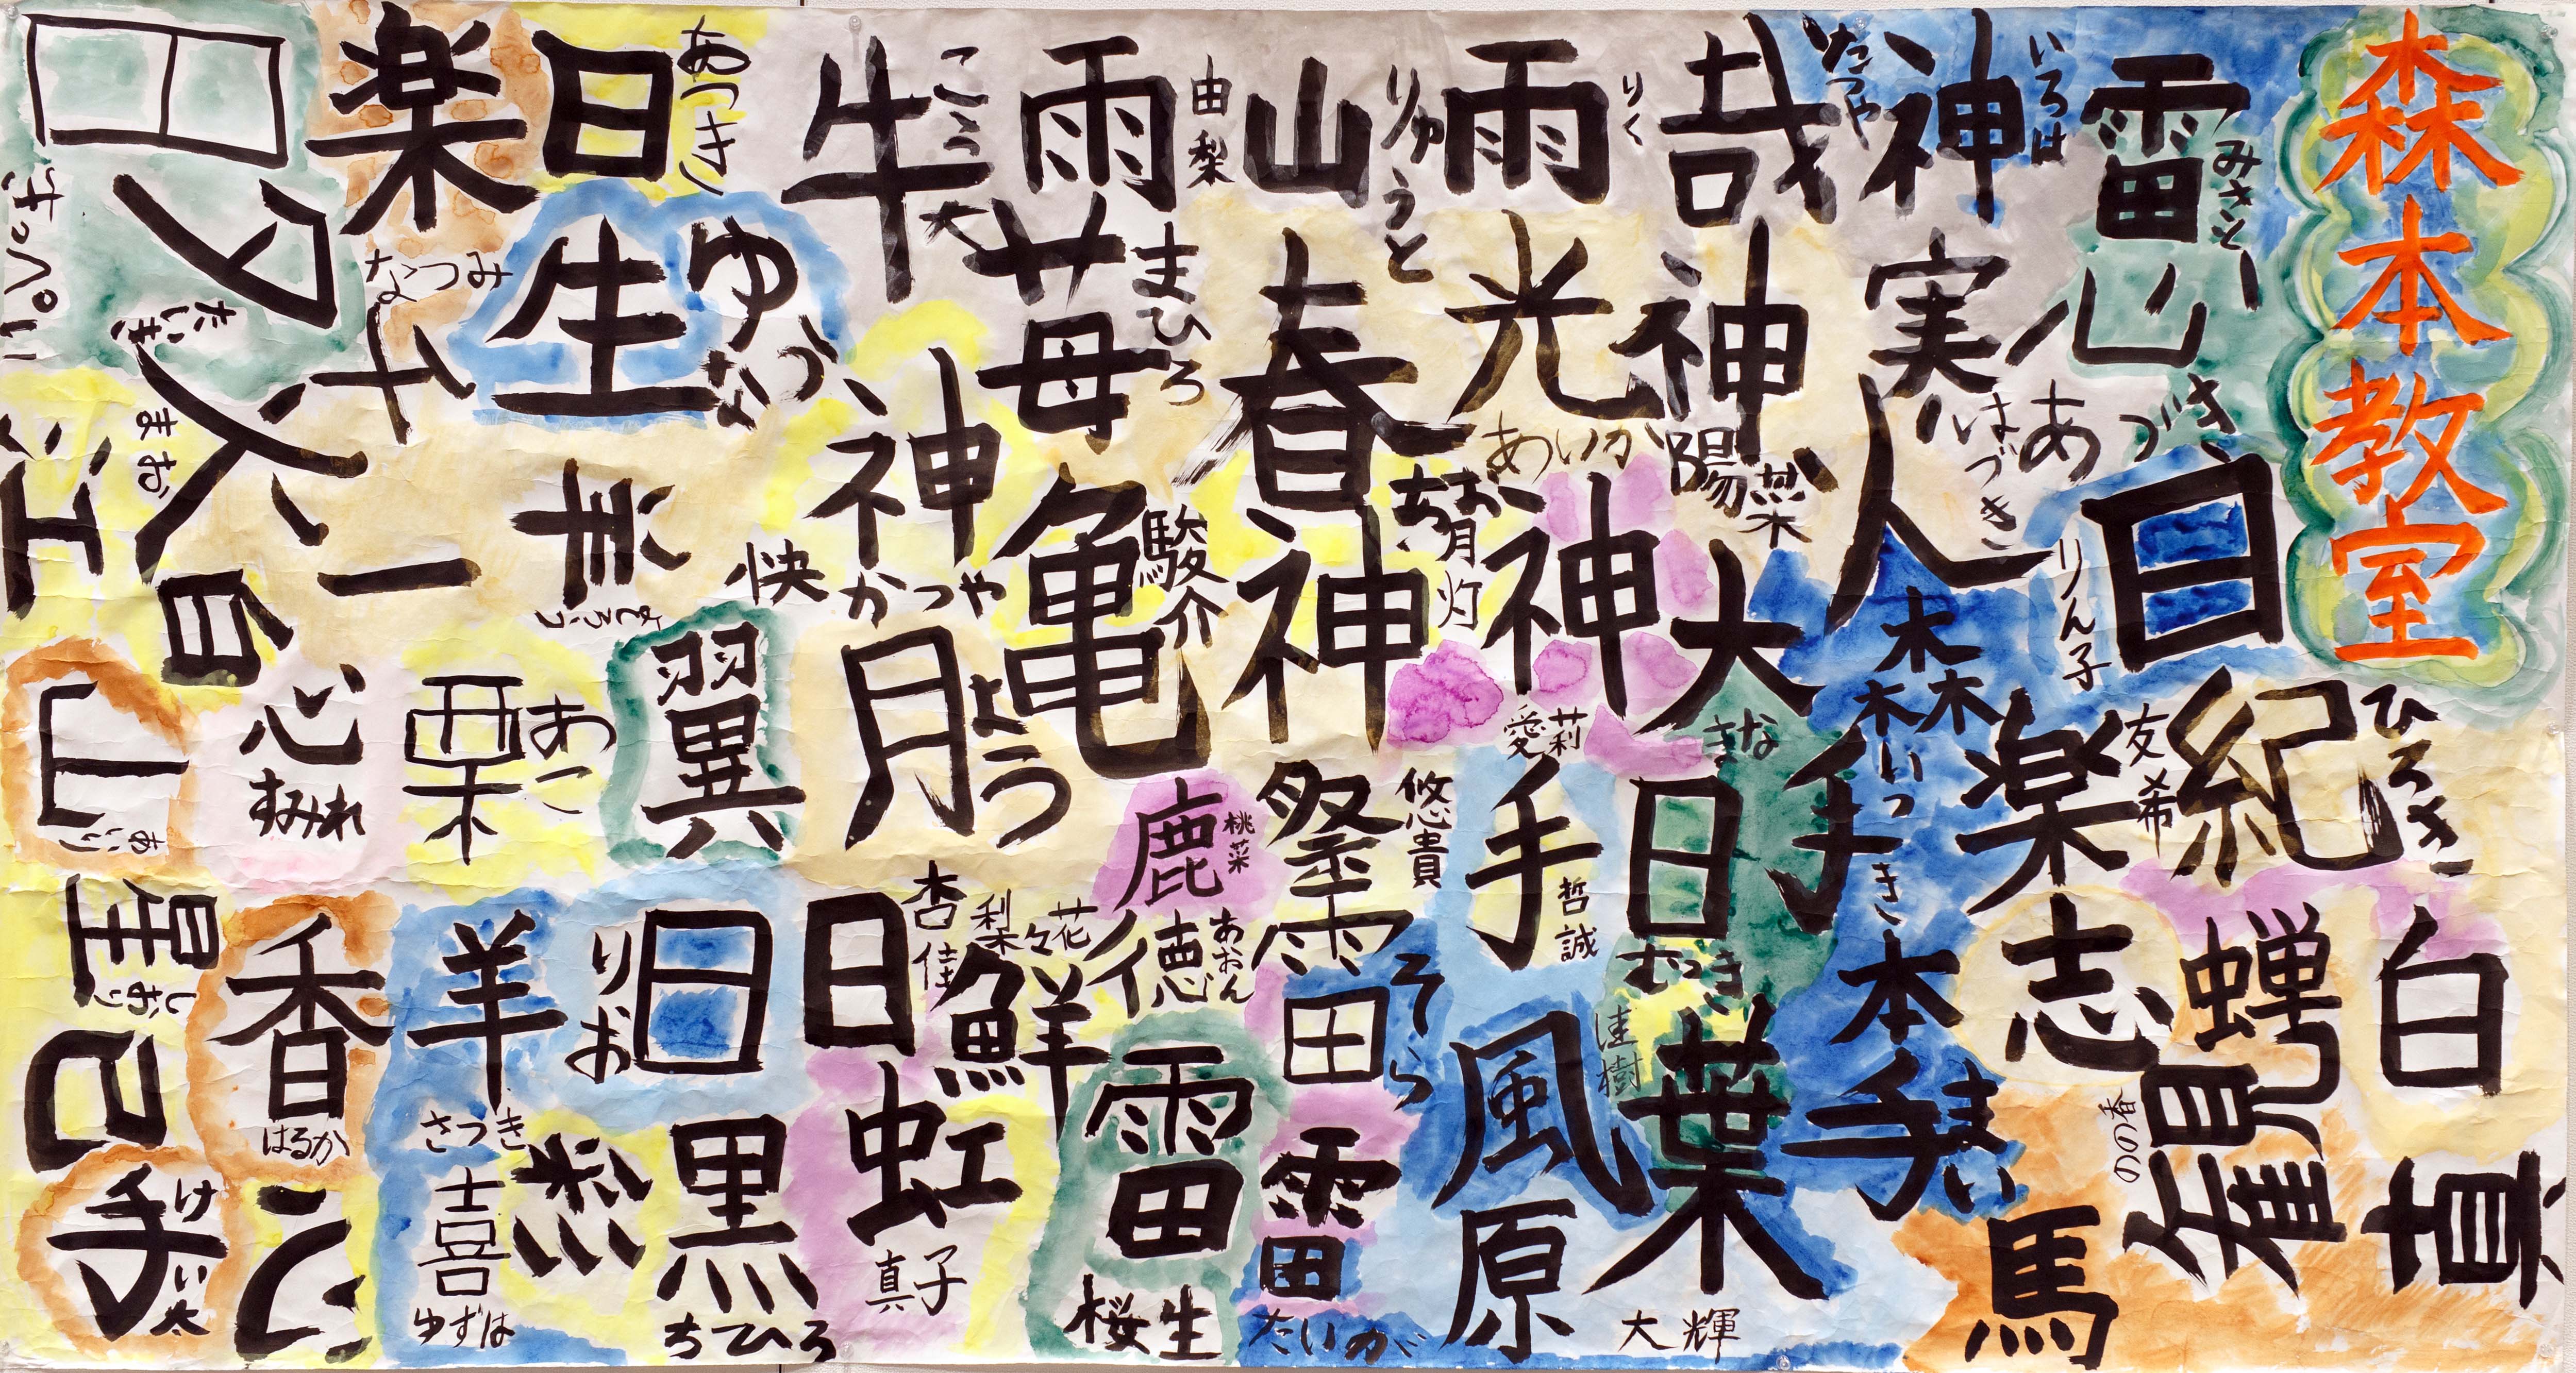 森本教室
雷
みさと
山
あづき
目
りん子
紀
ひろき
白
真
神
いろは
実
はづき
人
森
いつき
楽
友希
志
蝉
観
のの香
馬
哉
たつや
神
陽菜
大
きな
手
本
日
むつき
葉
大輝
雨
りく
光
あいか
神
愛莉
手
哲誠
風
原
山
りゅうと
春
神
灯
祭
悠貴
雷
そら
雷
たいが
雨
由梨
苺
まひろ
亀
駿介
鹿
桃菜
徳
あおん
雷
桜生
牛
こう大
神
かつや
月
よう
日
杏佳
鮮
梨々花
虹
真子
日
あつき
生
ゆづな
快
翼
日
りお
黒
ちひろ
楽
みつな
千
一
栗
あこ
羊
さつき
喜
ゆずは
田
夕
たいき
人
まお
江
白
心
すみれ
山
あい
星
しおり
香
はるか
己
手
けい太
心